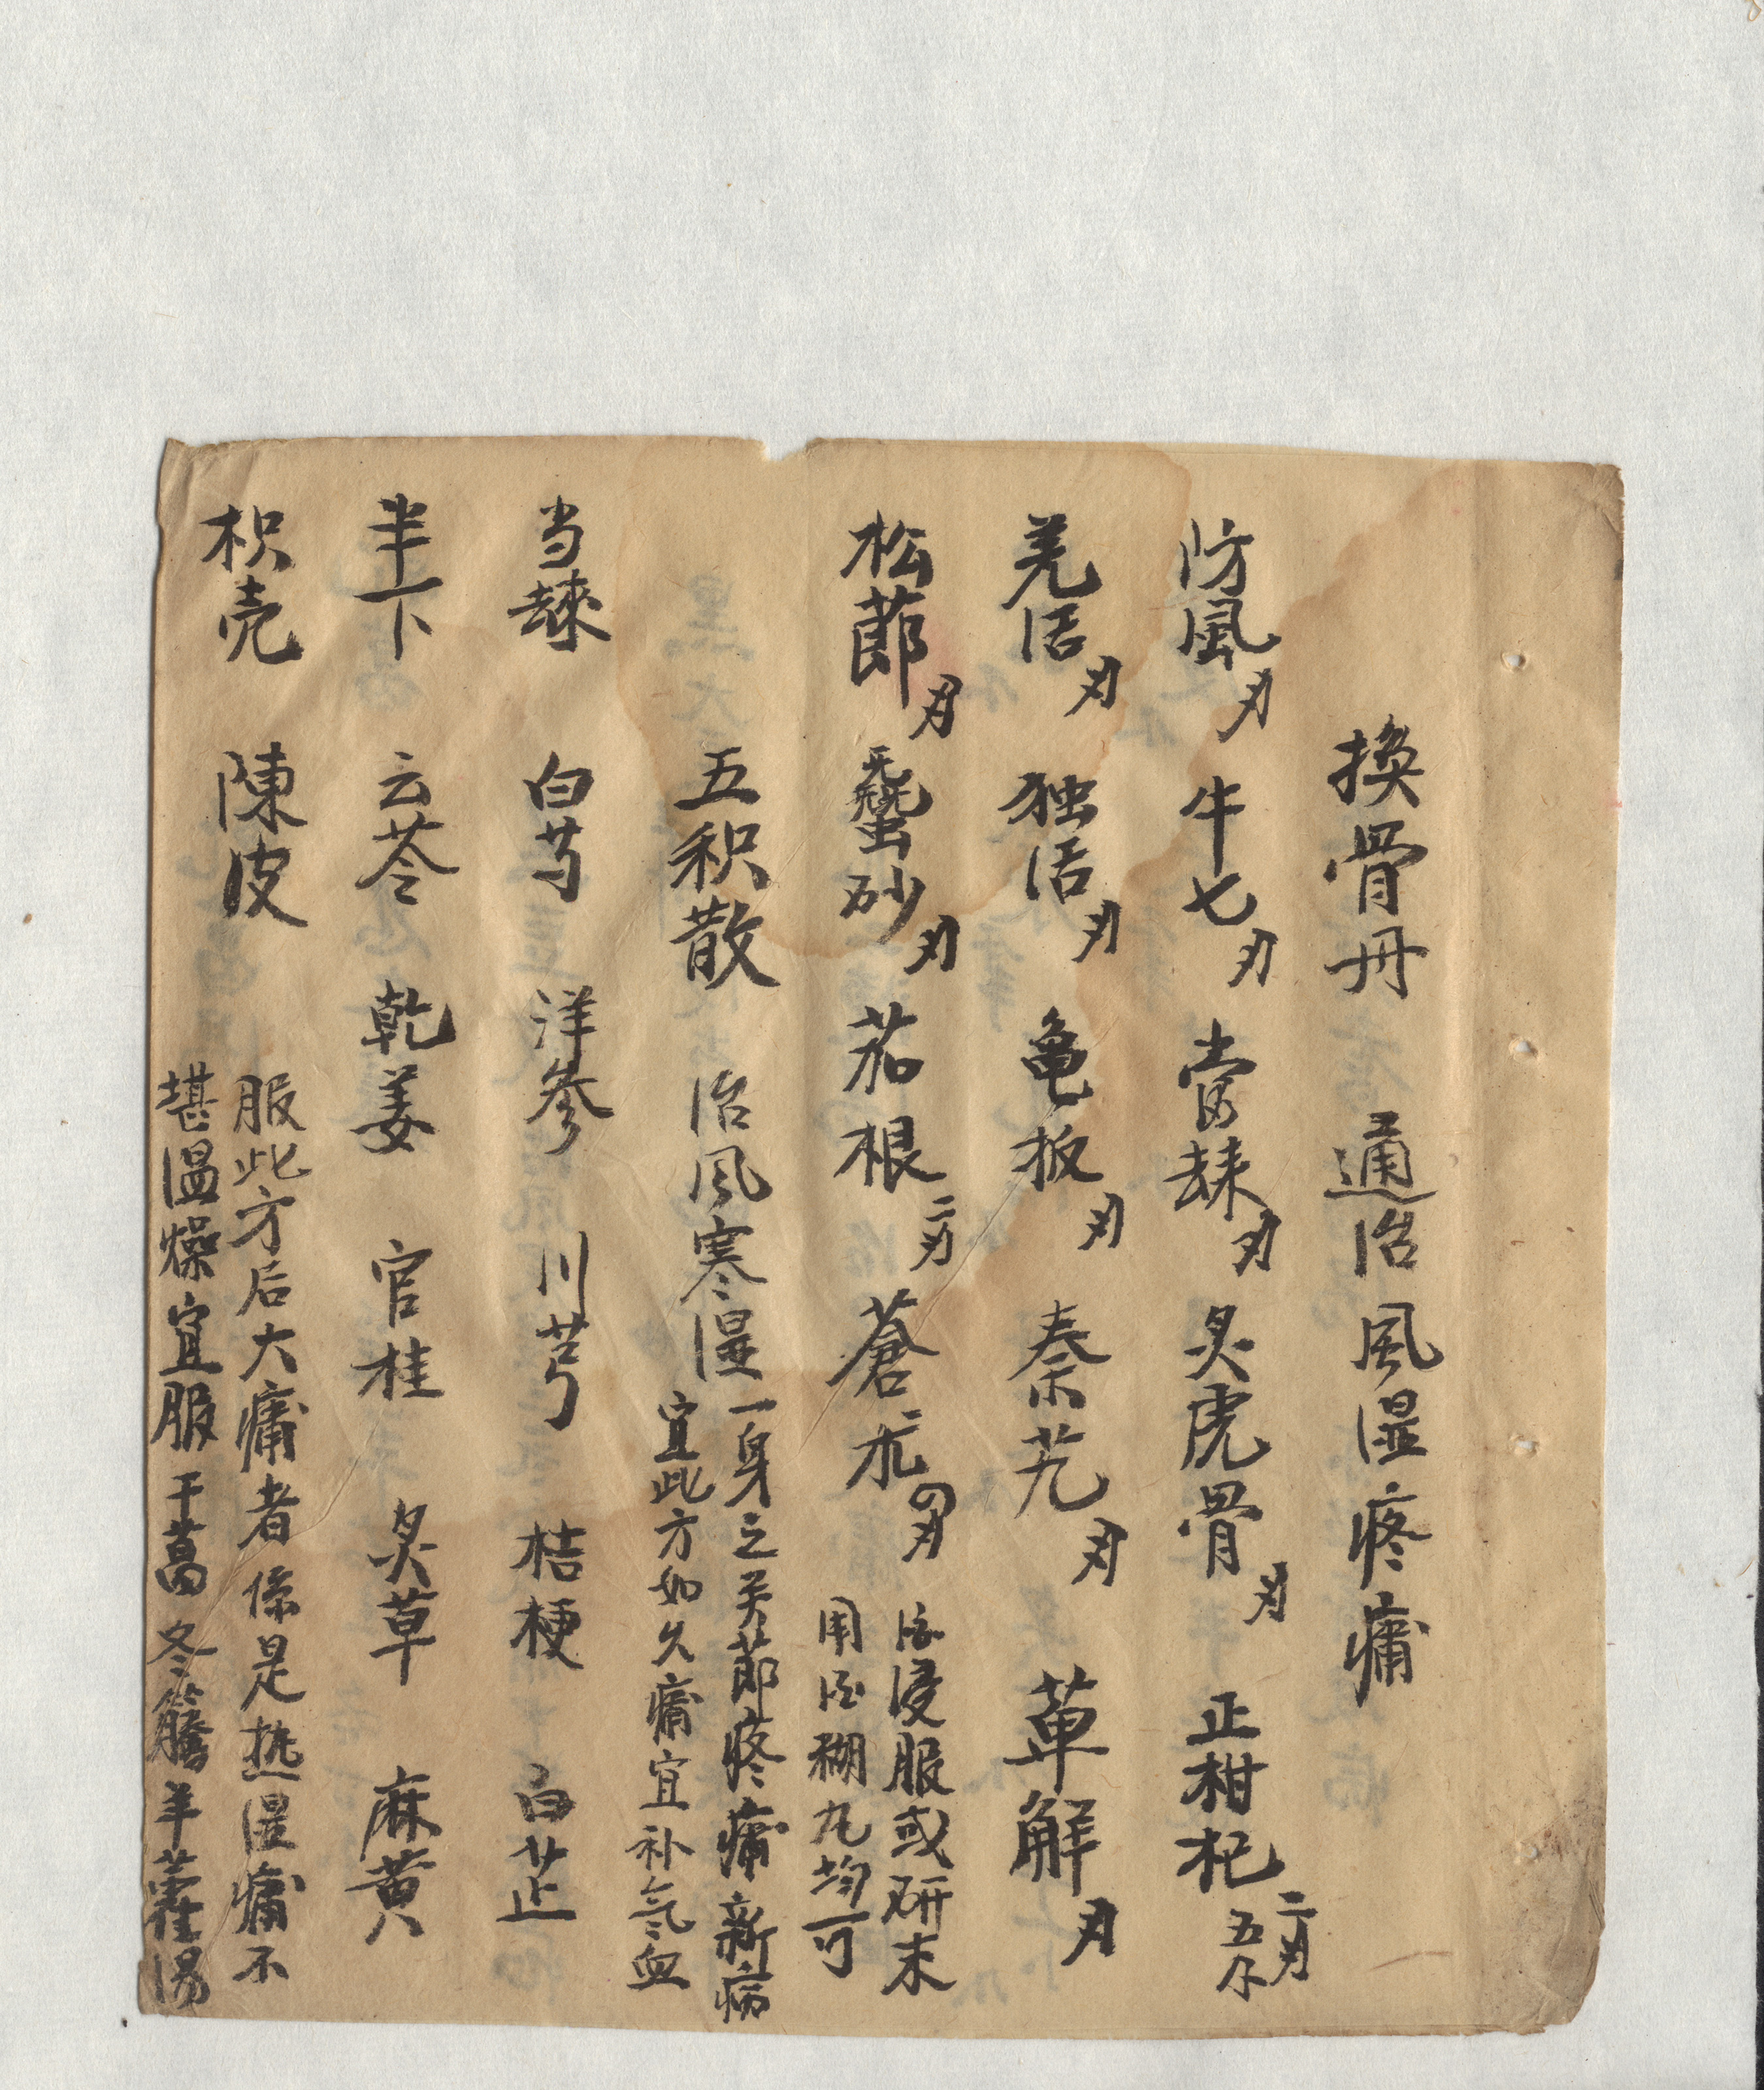 換骨丹 通治風湿疼痛
防風刃 牛七刃 當歸刃 炙虎骨刃 正柑杞二刃五不
羌活刃 独活刃 亀板刃 秦艽刃 萆解刃
松節刃 蚕砂刃 茄根二刃 蒼朮四刃 酒浸服或研末
用酒糊丸均可
五积散 治風寒湿 一身之关節疼痛新病
宜此方如久痛宜补氣血
当歸 白芍 洋參 川芎 桔梗 白芷
半下 云苓 乾姜 官桂 炙草 麻黄
枳壳 陳皮 服此方后大痛者係是热湿痛不
堪温燥宜服干葛冬籐羊藿湯